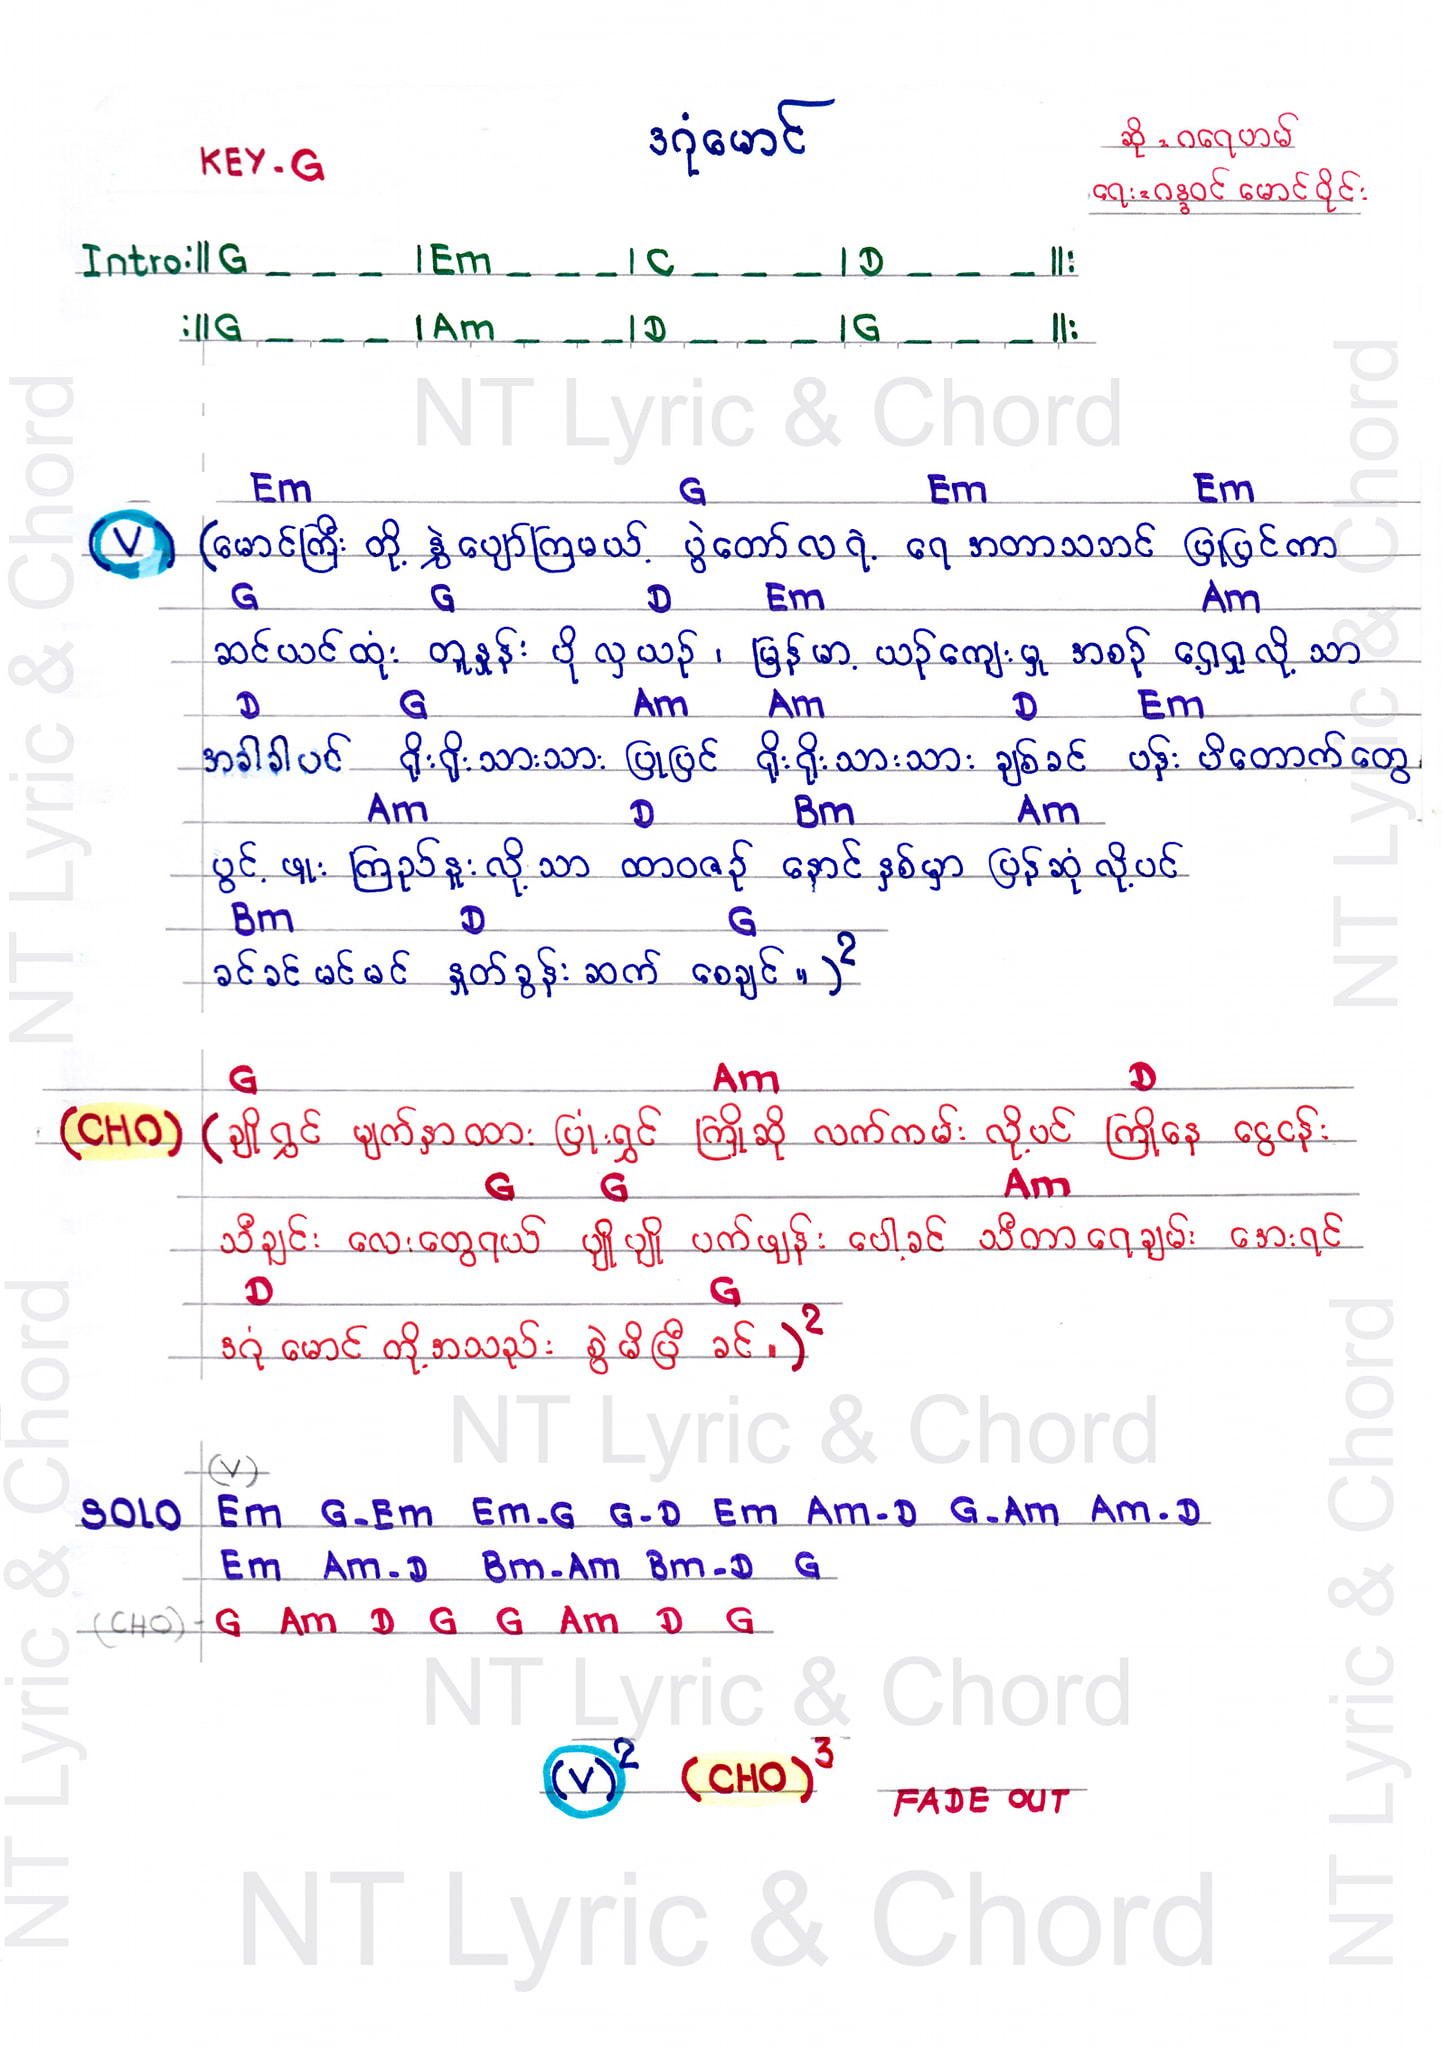 ဒဂုံမောင်
KEY-G
ဆို = ဂရေဟမ်
ရေး = ဂန္ဓဝင် မောင်ဝိုင်း
Intro:||G _ _ _ |Em _ _ _ |C _ _ _ |D _ _ _ ||:
:||G _ _ _ |Am _ _ _ |D _ _ _ |G _ _ _ ||:
NT Lyric & Chord
Em G Em Em
(V) (မောင်ကြီး တို့ နွှဲပျော်ကြမယ့် ပွဲတော်လရဲ့ ရေ အတာသဘင် ဖြူဖြင်ကာ
G G D Em Am
ဆင်ယင်ထုံး တူနှုန်း ဖို လှယဉ် ၊ မြန်မာ့ ယဉ်ကျေးမှု အစဉ် ရှေ့ရှုလို့ သာ
D G Am Am D Em
အခါခါပင် ရိုးရိုးသားသား ဖြူဖြင် ရိုးရိုးသားသား ချစ်ခင် ပန်း ပိတောက်တွေ
Am D Bm Am
ပွင့် ဖူး ကြဉ်နူးလို့သာ ထာဝစဉ် နှောင်နှစ်မှာ ပြန်ဆုံလို့ပင်
Bm D G
ခင်ခင်မင်မင် နှုတ်ခွန်းဆက် စေချင် ။)2
G Am D
(CHO) (ချိုရွှင် မျက်နှာထား ပြုံးရွှင် ကြိုဆို လက်ကမ်း လို့ပင် ကြိုနေ ငွေငန်း
G G Am
သီချင်း လေးတွေရယ် ပျိုပျို ပက်ဖျန်း ပေါ့ခင် သီတာရေချမ်း အေးရင်
D G
ဒဂုံ မောင် တို့အသည်း စွဲမိပြီ ခင် ။)2
NT Lyric & Chord
(V)
SOLO Em G-Em Em-G G-D Em Am-D G-Am Am-D
Em Am-D Bm-Am Bm-D G
(CHO)- G Am D G G Am D G
NT Lyric & Chord
(V)2 (CHO)3 FADE OUT
NT Lyric & Chord
NT Lyric & Chord
NT Lyric & Chord
NT Lyric & Chord
NT Lyric & Chord